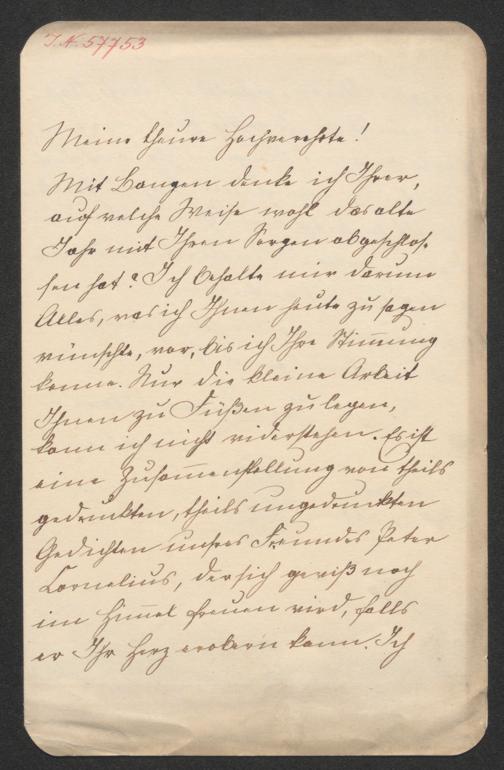 J.N. 57753
Meine theure Hochverehrte!
Mit Bangen denke ich Ihrer,
auf welche Weise wohl das alte
Jahr mit Ihren Sorgen abgeschlos-
sen hat? Ich behalte mir darum
Alles, was ich Ihnen heute zu sagen
wünschte, vor, bis ich Ihre Stimmung
kenne. Nur die kleine Arbeit
Ihnen zu Füßen zu legen,
kann ich nicht widerstehen. Es ist
eine Zusammenstellung von theils
gedruckten, theils ungedruckten
Gedichten unsres Freundes Peter
Cornelius, der sich gewiß noch
im Himmel freuen wird, falls
er Ihr Herz erobern kann. Ich